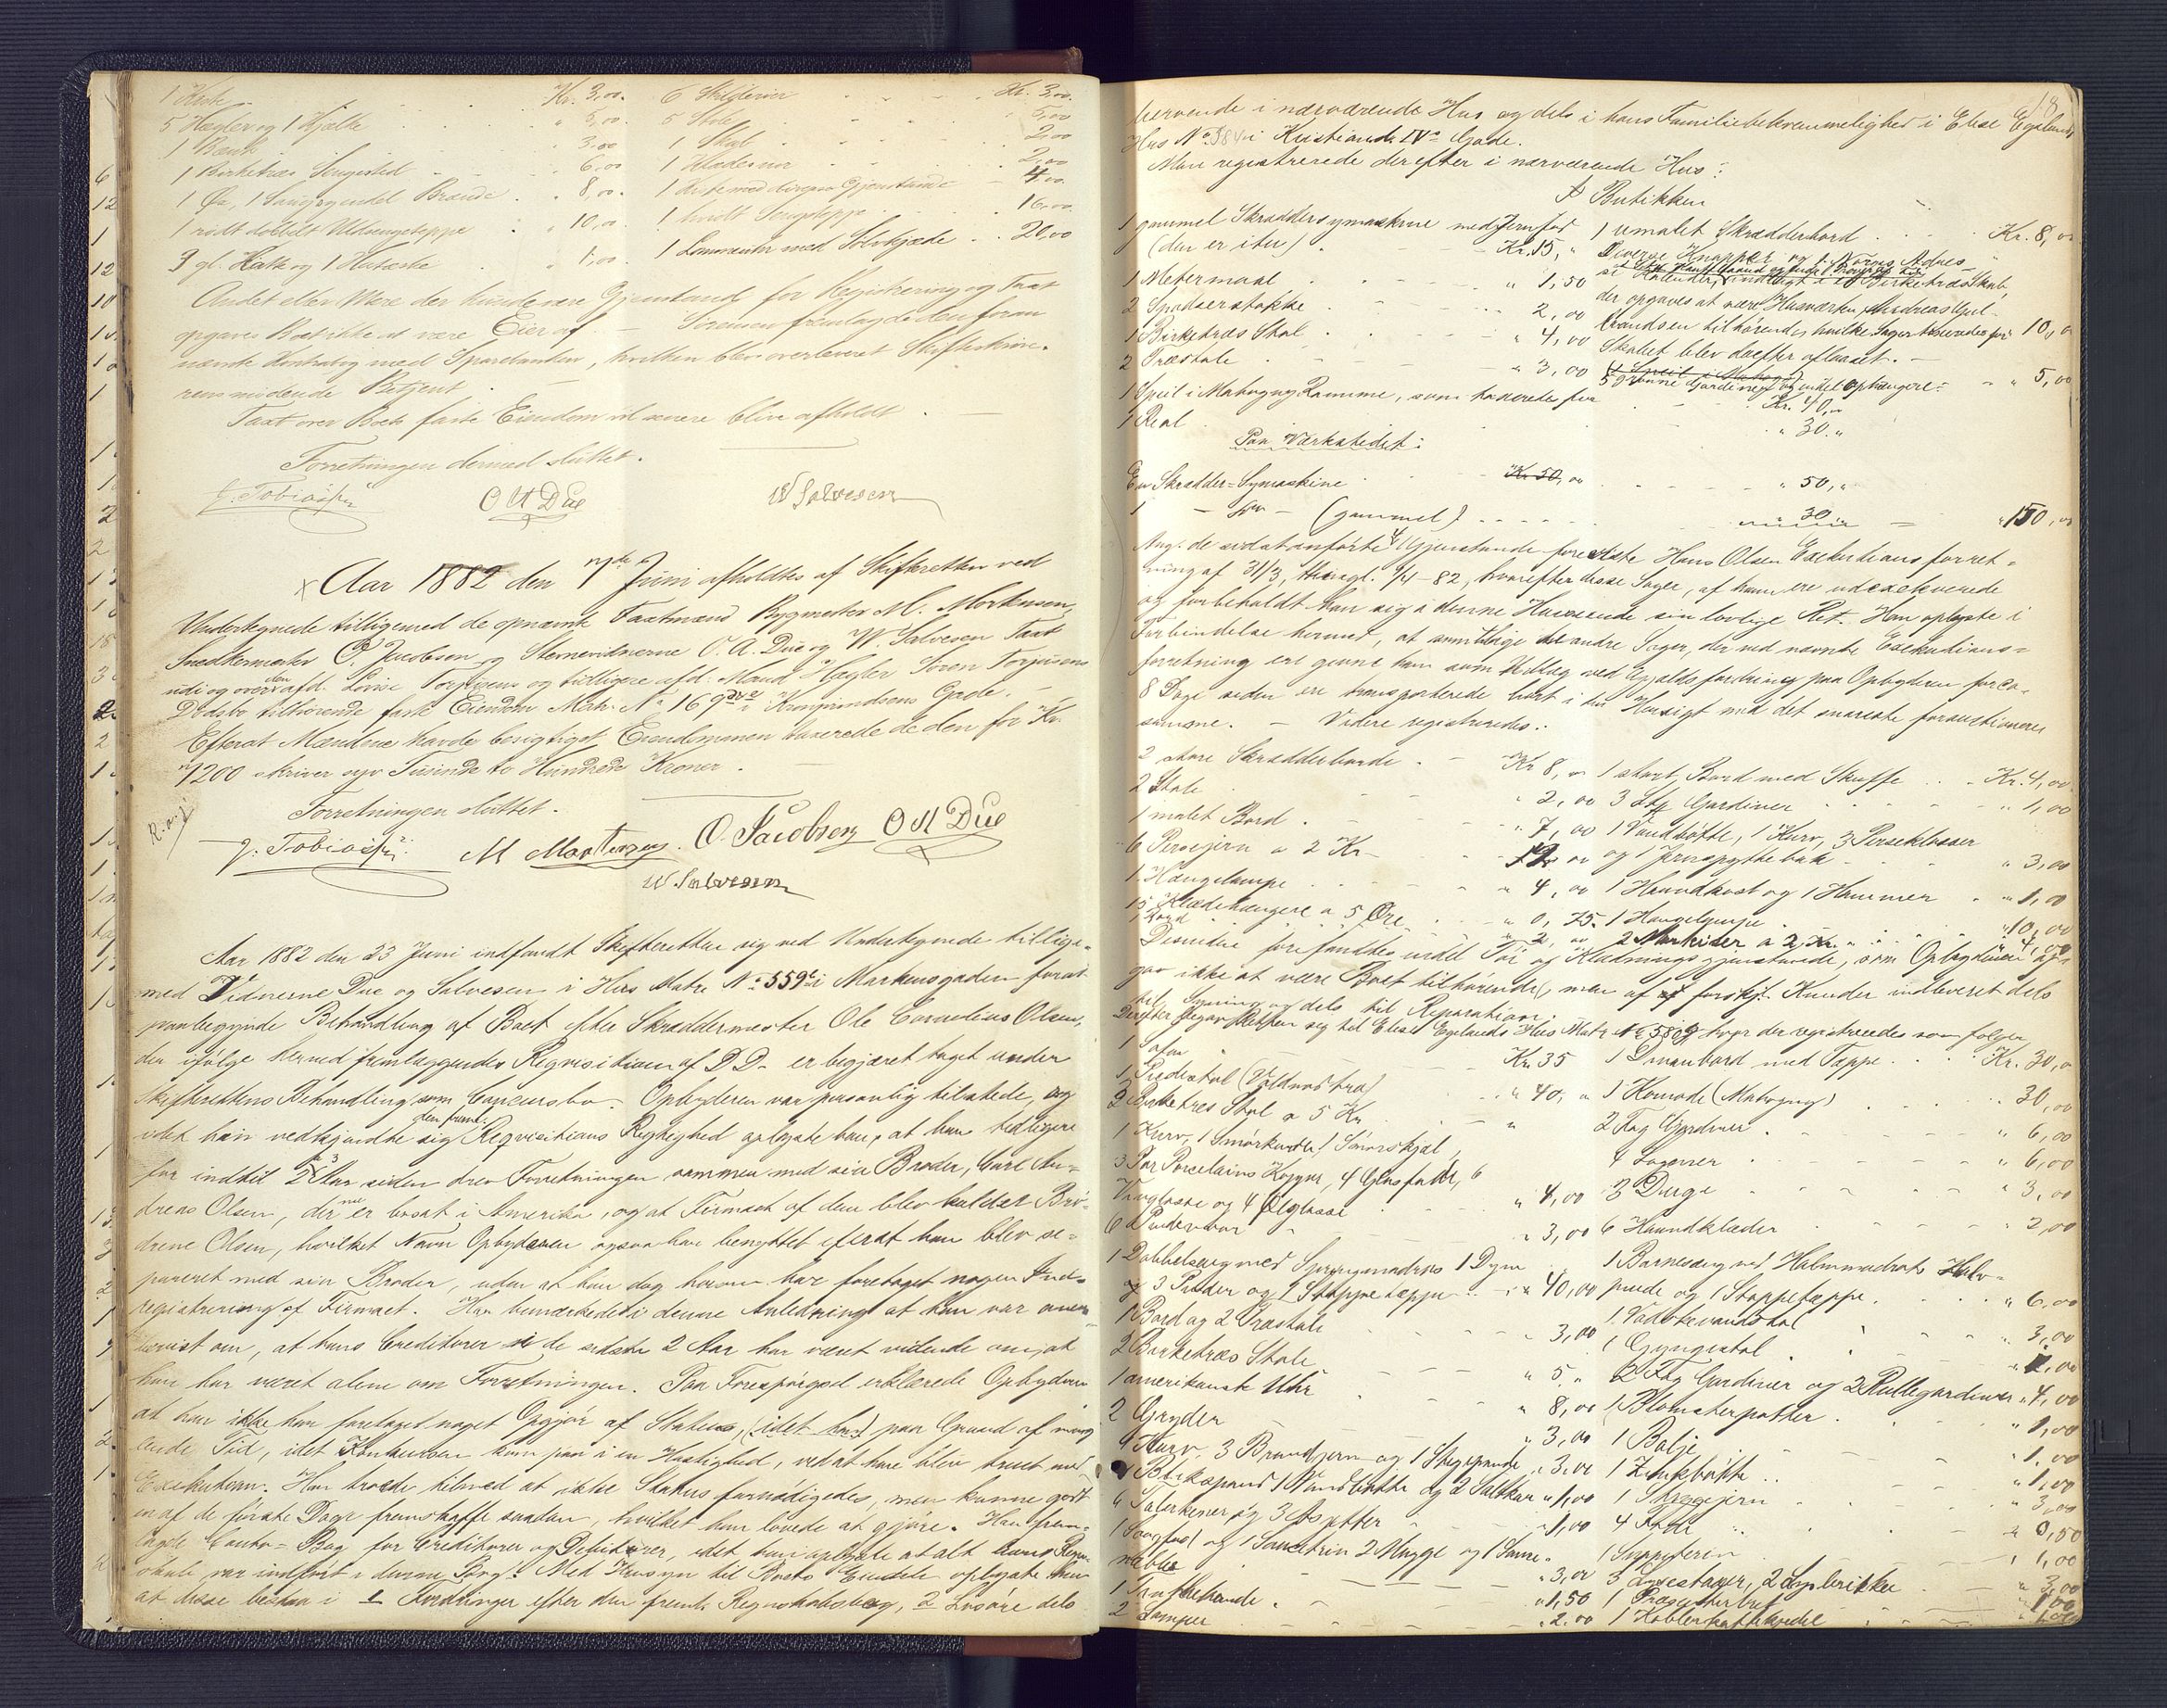 1 Kiste . . . Kr. 3,00. 6 Skilderier . . . Kr. 3,00.
5 Hegler og 1 Kjælke . . . " 5,00. 5 Stole . . . 5,00
1 Bænk . . . 3,00 1 Skab . . . 2,00
1 Birketræs Sengested . . . 6,00 1 Klædesnor . . . 2,00
1 Øx, 1 Saug og endel Brænde . . " 8,00. 1 Kiste med diverse Gjenstande - 4,00.
1 rødt dobbelt Uldsengeteppe . " 10,00 1 hvidt Sengeteppe . . . 16,00.
3 gl. Hatte og 1 Hatæske . . 1,00. 1 Lommeuhr med Sølvkjæde . . 20,00
Andet eller Mere der kunde være Gjenstand for Registrering og Taxt
opgaves Boet ikke at være Eier af. — Sørensen fremlagde den foran
nævnte Kontrabog med Sparebanken, hvilken blev overleveret Skifteskriverens
mødende Betjent.
Taxt over Boets faste Eiendom vil senere blive afholdt. —
Forretningen dermed sluttet.
J. Tobiassen O A Due W Salvesen
Aar 1882 den 7de Juni afholdtes af Skifteretten ved
Undertegnede tilligemed de opnævnte Taxtmænd Bygmester M. Mortensen,
Snedkermester O. Jacobsen og Stevnevidnerne O. A. Due og W. Salvesen Taxt
udi og over den afd. Lovise Torjusens og tidligere afd. Mand Hegler Søren Torjusens
Dødsbo tilhørende faste Eiendom Matr. No 169 i Kronprindsens Gade. —
Efterat Mændene havde besigtiget Eiendommen taxerede de den for Kr.
7200 skriver syv Tusinde to Hundrede Kroner. —
Forretningen sluttet.
J. Tobiassen M Mortensen. O. Jacobsen O A Due
W. Salvesen
Aar 1882 den 23 Juni indfandt Skifteretten sig ved Undertegnede tillige-
med Vidnerne Due og Salvesen i Hus Matr No 559 i Markensgaden forat
paabegynde Behandling af Boet efter Skræddermester Ole Cornelius Olsen,
der ifølge hermed fremlæggendes Reqvisition af D.D. er begjæret taget under
Skifterettens Behandling som Concursbo. Opbyderen var personlig tilstede, og
idet han vedkjendte sig den freml. Reqvisitions Rigtighed oplyste han, at han tidligere
for indtil 2 Aar siden drev Forretningen sammen med sin Broder, Carl An-
dreas Olsen, der nu er bosat i Amerika, og at Firmaet af dem blev kaldet Brø-
drene Olsen, hvilket Navn Opbyderen ogsaa har benyttet efterat han blev se-
pareret med sin Broder, uden at han dog herom har foretaget nogen Ind-
registrering af Firmaet. Han bemærkede i denne Anledning at han var over-
bevist om, at hans Creditorer i de sidste 2 Aar har været vidende om, at
han har været alene om Forretningen. Paa Forespørgsel erklærede Opbyderen
at han ikke har foretaget noget Opgjør af Status, (idet han) paa Grund af mang-
lende Tid, idet Konkursen kom paa i en Hastighed, ved at han blev truet med
Exekution. Han troede tilmed at ikke Status fornødigedes, men kunne godt
en af de første Dage fremskaffe saadan, hvilket han lovede at gjøre. Han frem-
lagde Conto-Bog for Creditorer og Debitorer, idet han oplyste at alt hans Regn-
skab var indført i denne Bog. Med Hensyn til Boets Eiendele oplyste han
at disse bestaa i 1 Fordringer efter den freml. Regnskabsbog, 2 Løsøre dels
18
beroende i nærværende Hus og dels i hans Familiebekvemmelighed i Elise Egelands
Hus No 580 i Kristiands IVs Gade.
Man registrerede derefter i nærværende Hus:
I Butikken
1 gammel Skræddersymaskine med Jernfod 1 umalet Skrædderbord . . . Kr. 8,00
(der er itu) . - Kr. 15, " Diverse Knapper og
1 Metermaal . . . " 1,50 Birketræs Skab,
2 Spadserstokke . . . 2,00 der opgaves at være Andreas
1 Birketræs Stol . . . " 4,00 tilhørende, hvilke Sager taxeredes for 10,00
2 Træstole . . . " 3,00 Skabet blev derefter aflaaset. —
1 Speil i Mahogny Ramme, som taxeredes for Kr. 40,00 5 grønne Gardiner og enkel Ophængere - " 5,00
1 Reol . . . " 30. "
Paa Værkstedet:
En Skrædder-Symaskine . . . Kr 50,00 . . . " 50, "
1 - Do - (gammel) . . . 30 - " 150,00
Ang. de sidstanførte 4 Gjenstande foreviste Hans Olsen Exekutionsforret-
ning af 31/3, thingl. /4-82, hvorefter disse Sager, af ham ere udexekverede
og forbeholdt han sig i denne Henseende sin lovlige Ret. Han oplyste i
Forbindelse hermed, at samtlige de andre Sager, der ved nævnte Exekutions-
forretning ere givne ham som Udlæg ved Gjældsfordring paa Opbyderen for ca.
8 Dage siden ere transporterede bort i den Hensigt med det snareste foraustioneres
samme. — Videre registreredes:
2 store Skrædderborde . - Kr 8,00 1 stort Bord med Skuffe . . . Kr. 4,00
2 Stole . . . " 2,00 3 Stk Gardiner . . . " 1,00
1 malet Bord . . . " 7,00 1 Vandbøtte, 1 Kurv, 3 Perseklodser
6 Persejern a 2 Kr - . . . 12,00 og 1 Jernspyttebak . . . " 3,00
1 Hængelampe . . . " 4,00 1 Haandkost og 1 Hammer . . " 1,00
15 Klædehængere a 5 Øre . . . " 0,75. 1 Hængelampe . . . " 10,00
1 Bord . . . " 2,00 2 Markiser a 2 Kr. . . . " 4,00
Desuden forefandtes endel Tøi og Klædningsgjenstande, som Opbyderen op-
gav ikke at være Boet tilhørende, men af forskj. Kunder indleveret dels
til Syning og dels til Reparation.
Derefter begav Retten sig til Elise Egelands Hus Matr No 580 hvor der registreredes som følger
1 Sofa . . . Kr. 35 1 Divanbord med Tæppe . . . Kr. 30,00
1 Pidestol (Valdnøttræ) . . " 40, " 1 Komode (Mahogny) . . . 30,00
2 Birketræs Stol a 5 Kr. " 2 Fag Gardiner . . . " 6,00
1 Kurv, 1 Smørkande, 1 Smørskjal, 4 Lagener . . . " 6,00
3 Par Porcelains Kopper, 4 Glasfade, 6
Vinglasse og 4 Ølglasse . . . " 4,00 3 Duge . . . " 3,00
6 Pudevaar . . . " 3,00 6 Haandklæder . . . " 2,00
1 Dobbeltseng med Springmadras 1 Dyne 1 Barneseng ved Halmmadrats Halv-
og 3 Puder og 1 Stoppetæppe . . . " 40,00 pude og 1 Stoppetæppe . . . " 6,00
1 Bord og 2 Træstole . . . " 3,00 1 Vaskevandstol . . . " 3,00
2 Birketræs Stole . . . " 5. " 1 Gyngestol . . . " 2,00
1 amerikansk Uhr . . . " 8,00 2 Fag Gardiner og 2 Rullegardiner " 4,00
2 Gryder . . . " 3,00 1 Blomsterpotter . . . " 1,00
1 Kurv, 3 Brændjern og 1 Stegepande " 3,00 1 Balje . . . " 1,00
1 Blikspand 1 Vandbøtte og 2 Saltkar " 1,00 1 Zinkbøtte . . . " 1,00
6 Talerkener og 3 Potter . . . " 1,00 1 Strygejern . . . " 3,00
4 Fade . . . " 0,50
1 Saugfad og 1 Saucetrin 2 Mugge og 1 Sauce- 1 Suppeterin . . . " 1,00
nebbe . . . " 3,00 3 Lysestager, 2 Lyslerikke . . . " 3,00
1 Theebrænde . . . " 1,50 1 Præsenterbret . . . " 1,00
2 Lamper . . . " 2.00 1 Kobberkaffekjedel . . . " 1,00